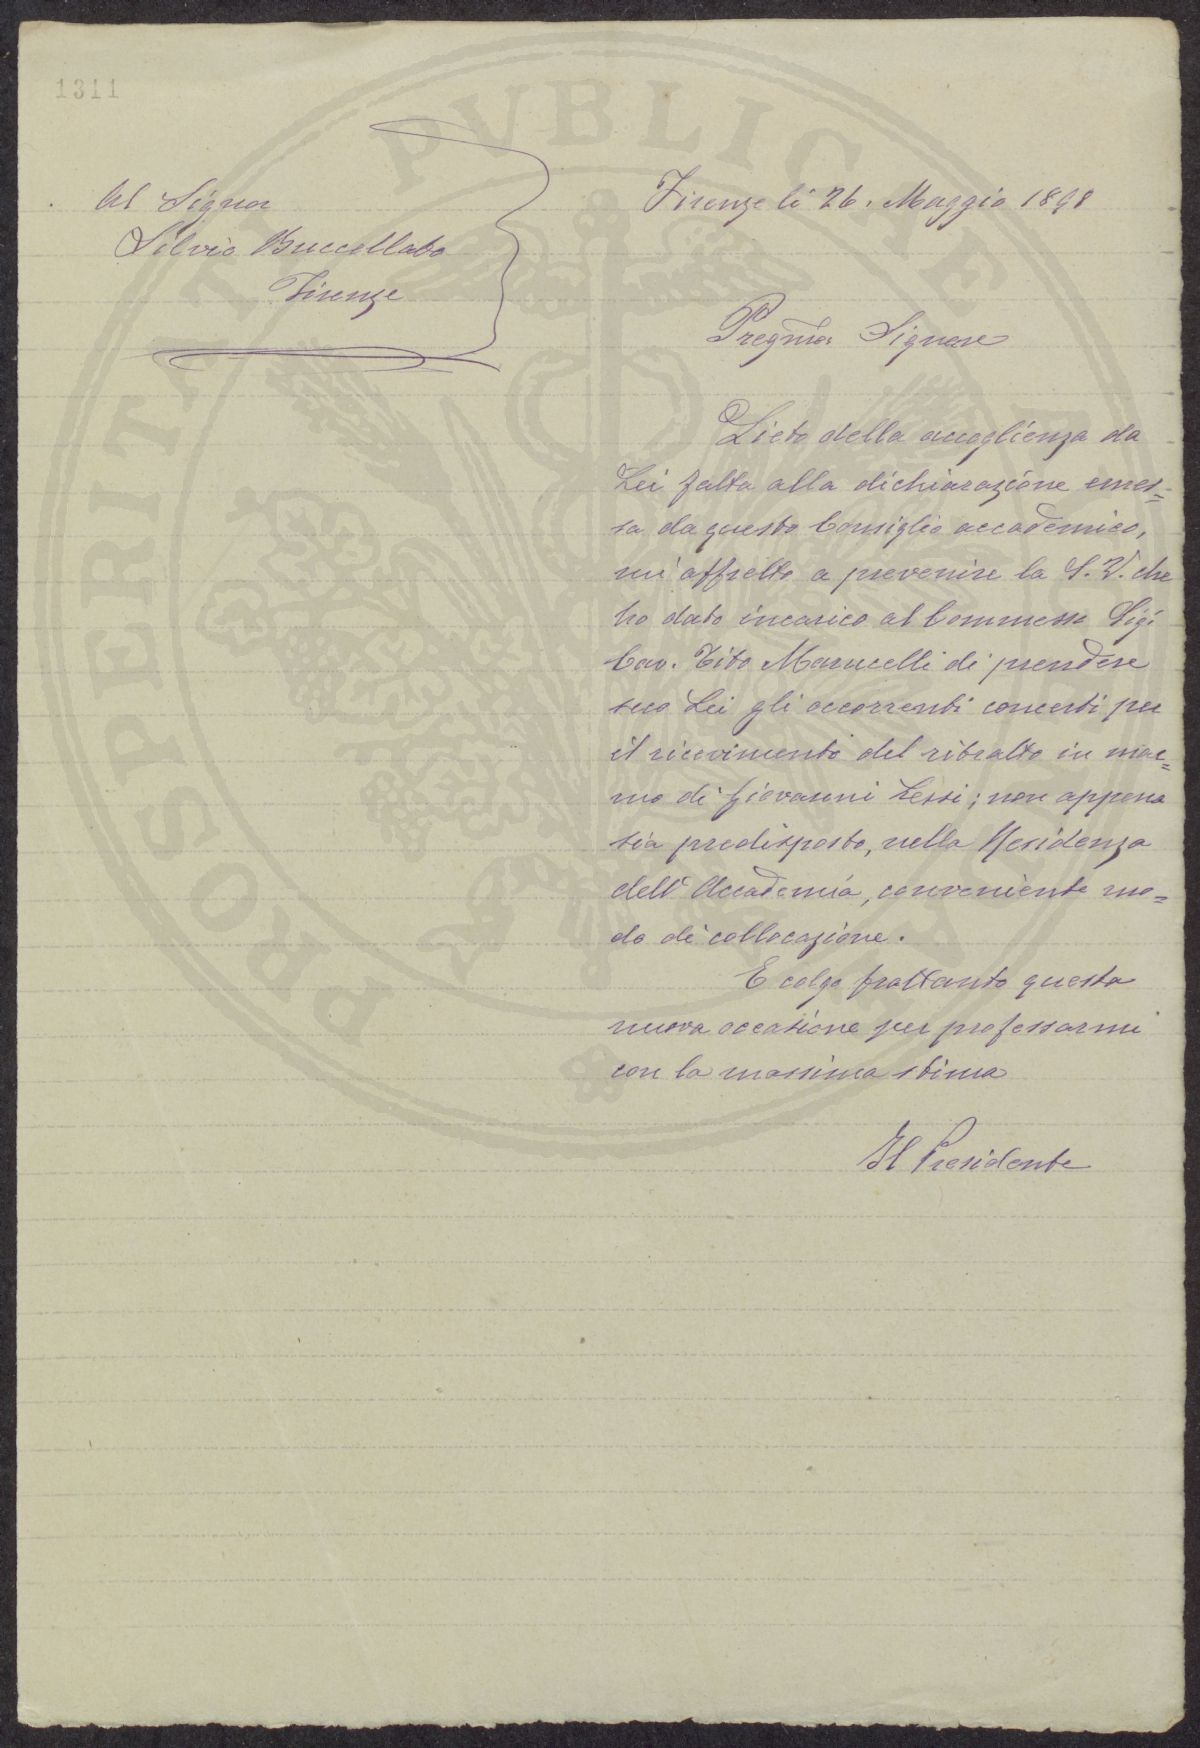 1311
Al Signor
Silvio Buccellato
Firenze
Firenze li 26. Maggio 1898
Pregmo. Signore
Lieto della accoglienza da
Lei fatta alla dichiarazione emes=
sa da questo Consiglio accademico,
mi affretto a prevenire la S. V. che
ho dato incarico al Commesso Sigr
Cav. Tito Marucelli di prendere
seco Lei gli occorrenti concerti per
il ricevimento del ritratto in mar=
mo di Giovanni Lessi; non appena
sia predisposto, nella Residenza
dell'Accademia, conveniente mo=
do di collocazione.
E colgo frattanto questa
nuova occasione per professarmi
con la massima stima
Il Presidente
PROSPERITATI PVBLICAE